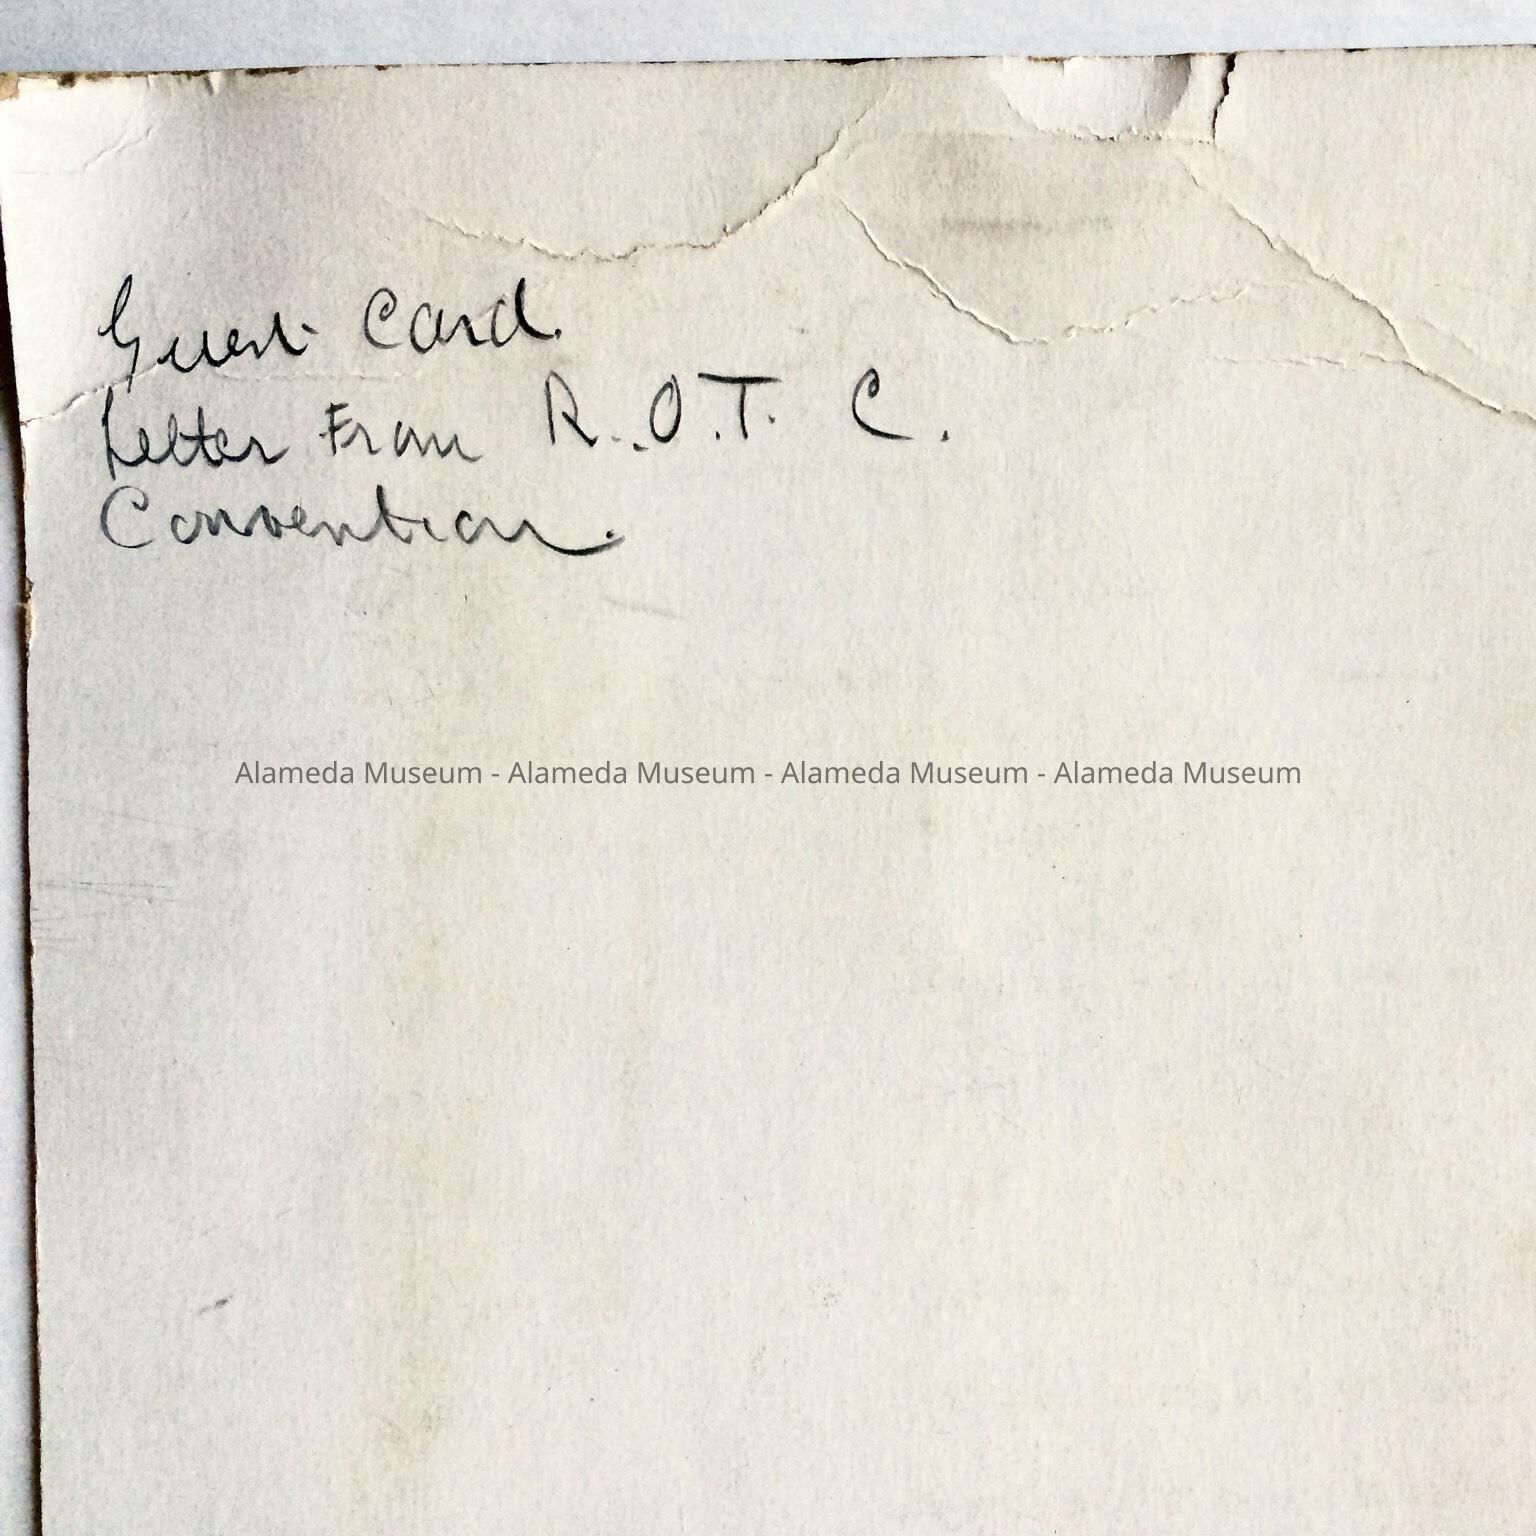 Guest Card.
Letter From R.O.T.C.
Convention.
Alameda Museum - Alameda Museum - Alameda Museum - Alameda Museum